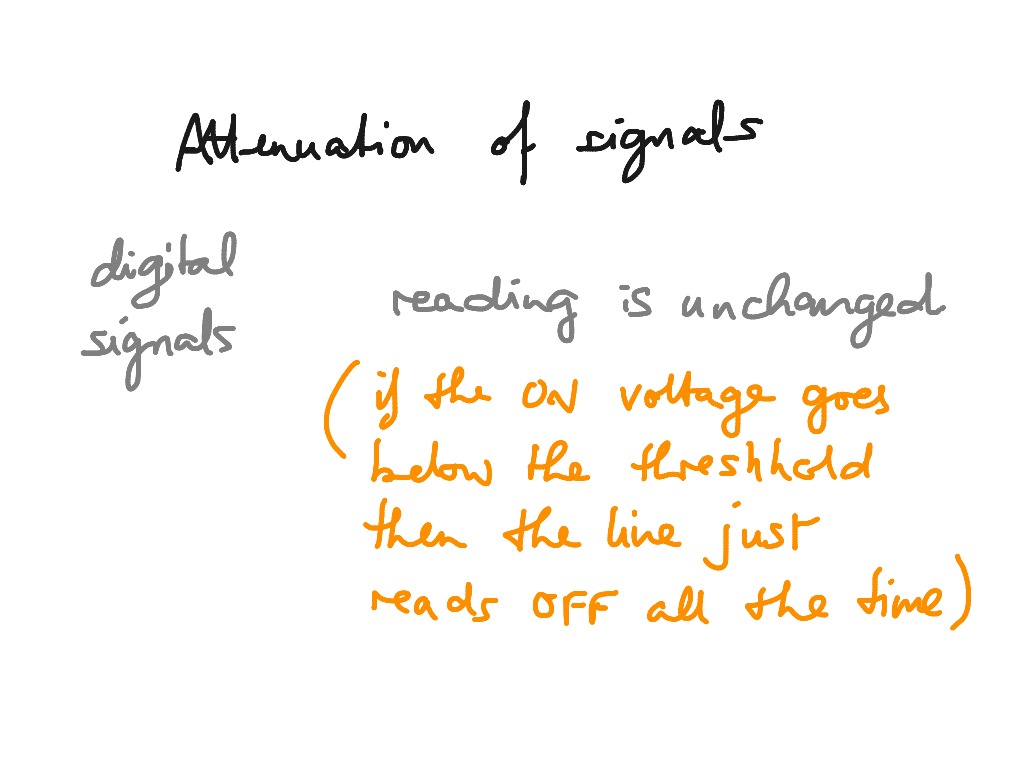 Attenuation of signals
digital
signals
reading is unchanged
(if the ON voltage goes
below the threshhold
then the line just
reads OFF all the time)